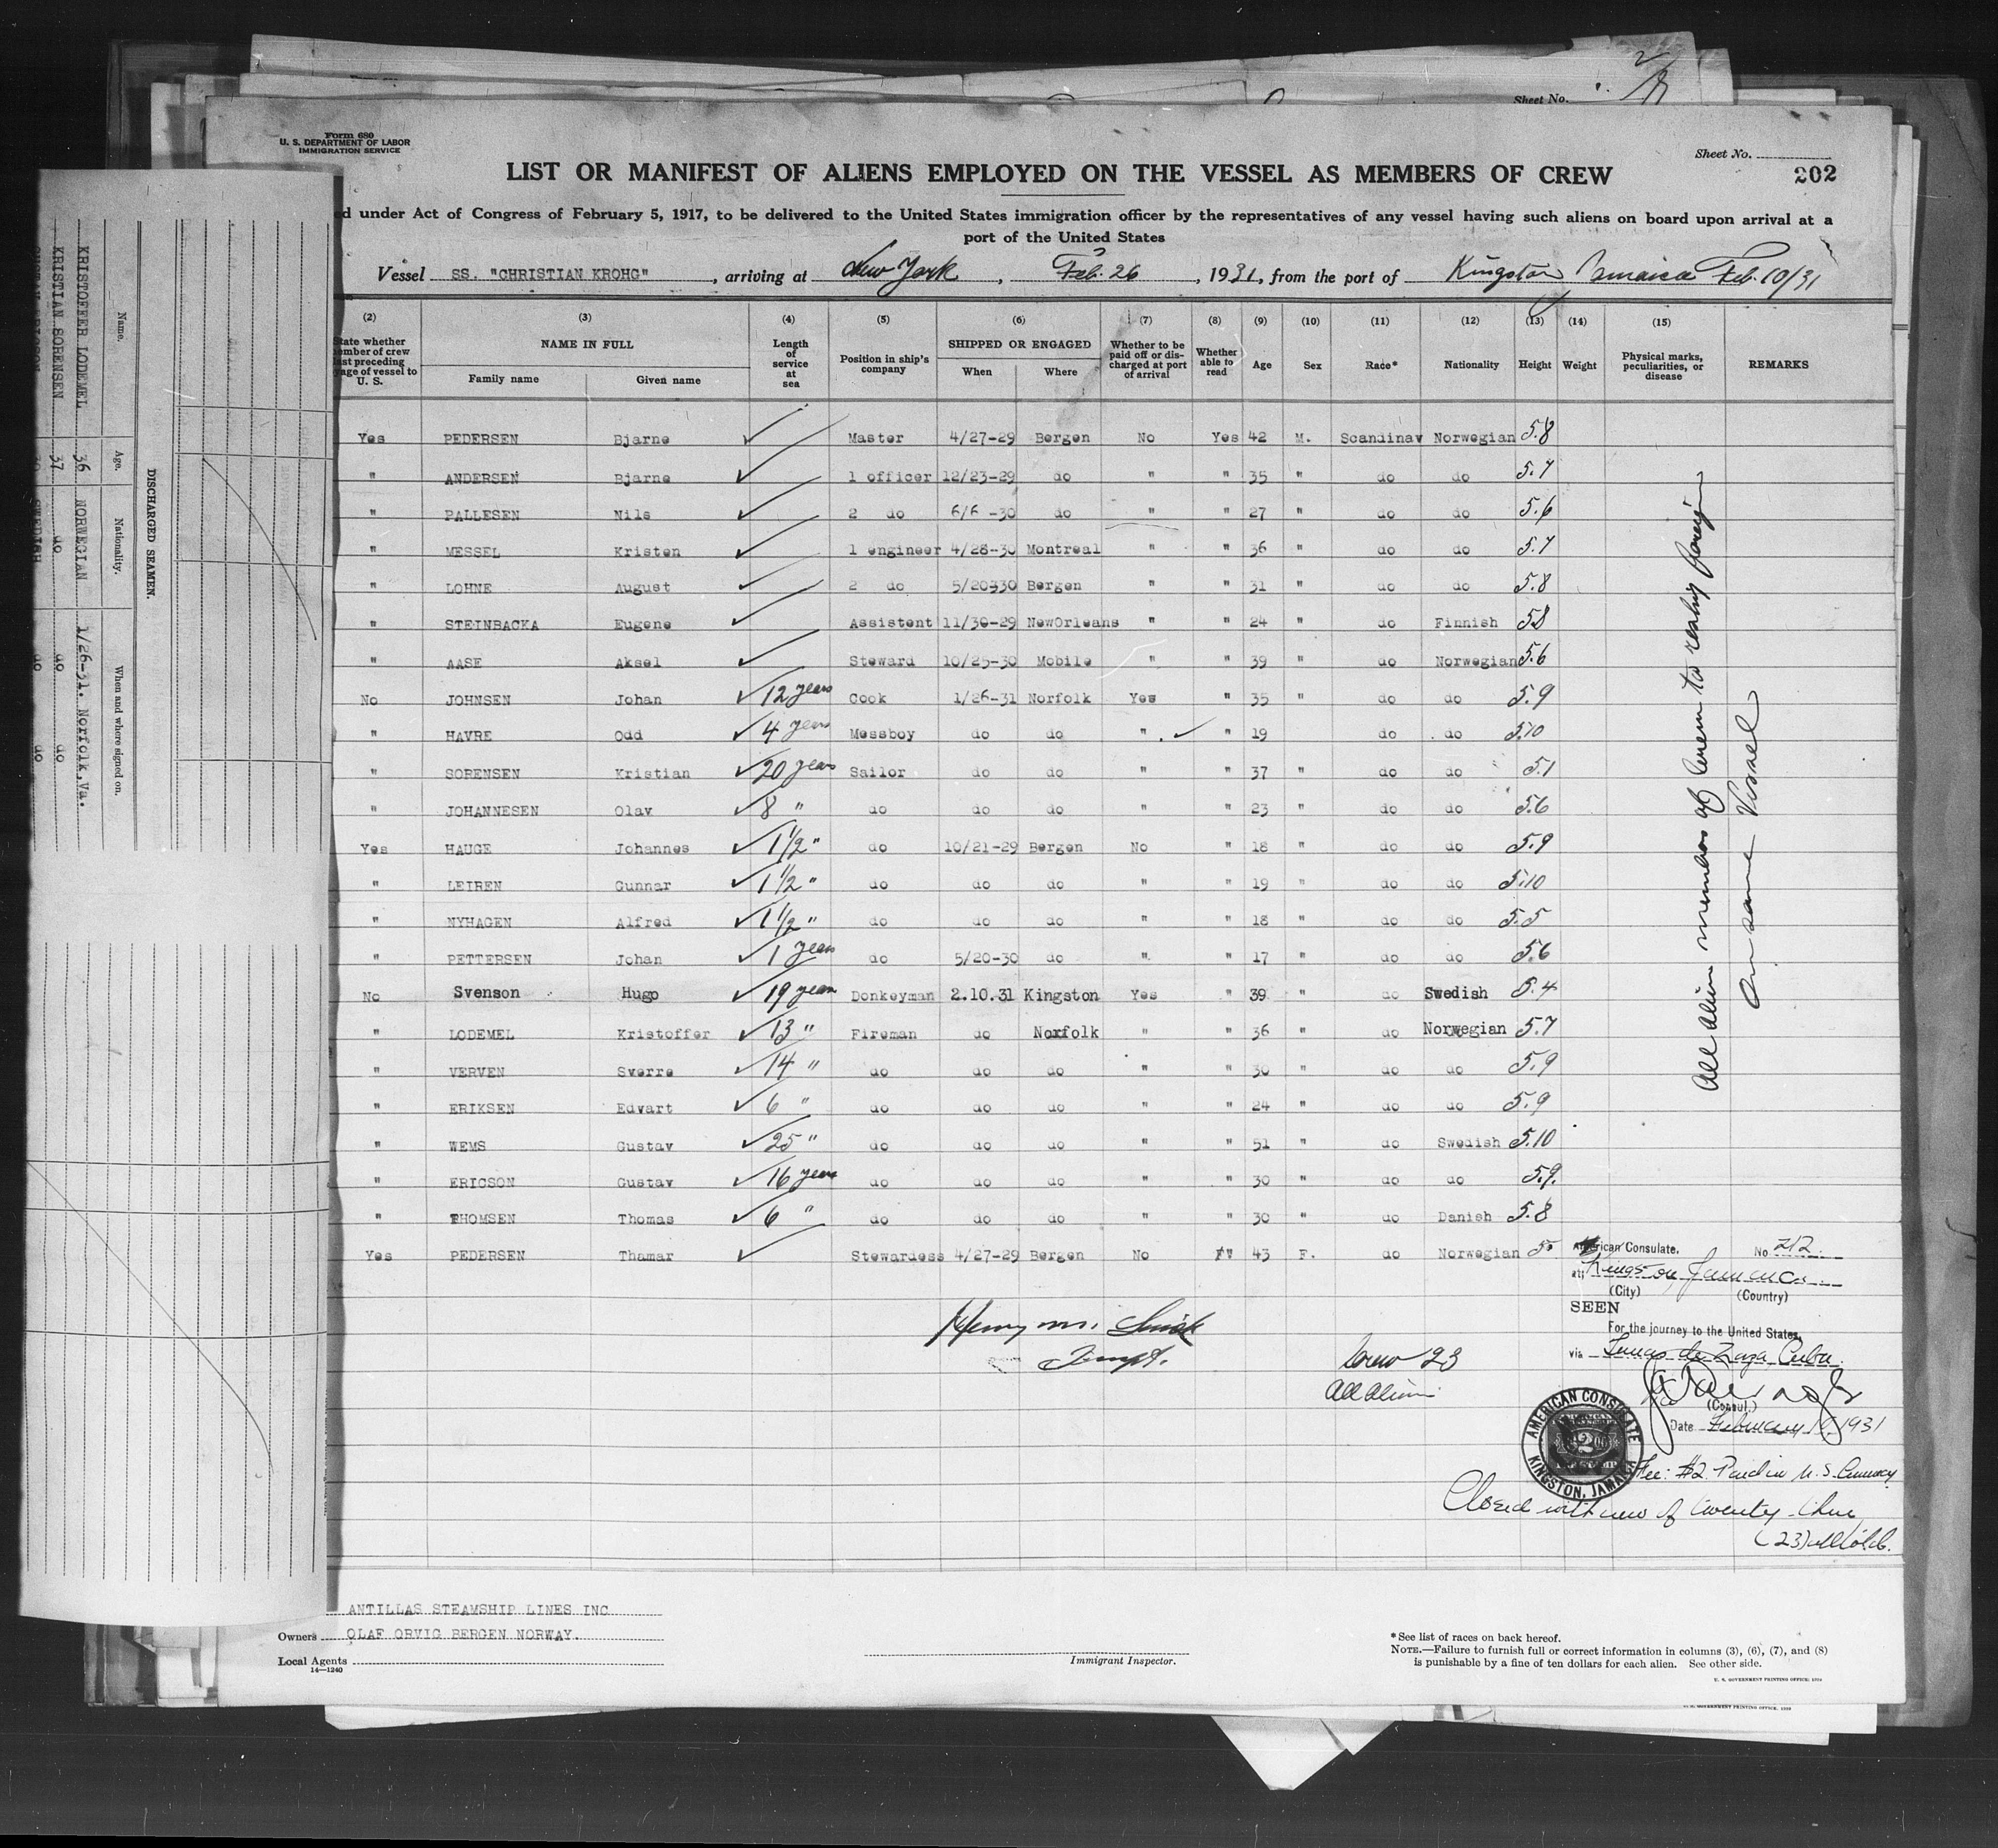 Sheet No.
Form 680
U. S. DEPARTMENT OF LABOR
IMMIGRATION SERVICE
Sheet No.
LIST OR MANIFEST OF ALIENS EMPLOYED ON THE VESSEL AS MEMBERS OF CREW
202
ed under Act of Congress of February 5, 1917, to be delivered to the United States immigration officer by the representatives of any vessel having such aliens on board upon arrival at a
port of the United States
Vessel SS. "CHRISTIAN KROHG", arriving at New York, Feb. 26, 1931, from the port of Kingston Jamaica Feb. 10/31
(2) (3) (4) (5) (6) (7) (8) (9) (10) (11) (12) (13) (14) (15)
State whether member of crew last preceding voyage of vessel to U. S. NAME IN FULL Family name Given name Length of service at sea Position in ship's company SHIPPED OR ENGAGED When Where Whether to be paid off or discharged at port of arrival Whether able to read Age Sex Race* Nationality Height Weight Physical marks, peculiarities, or disease REMARKS
Yes PEDERSEN Bjarne ✓ Master 4/27-29 Bergen No Yes 42 M. Scandinav Norwegian 5.8
" ANDERSEN Bjarne ✓ 1 officer 12/23-29 do " " 35 " do do 5.7
" PALLESEN Nils ✓ 2 do 6/6 -30 do " " 27 " do do 5.6
" MESSEL Kristen ✓ 1 engineer 4/28-30 Montreal " " 36 " do do 5.7
" LOHNE August ✓ 2 do 5/20-30 Bergen " " 31 " do do 5.8
" STEINBACKA Eugene ✓ Assistent 11/30-29 NewOrleans " " 24 " do Finnish 5.8
" AASE Aksel ✓ Steward 10/25-30 Mobile " " 39 " do Norwegian 5.6
No JOHNSEN Johan ✓ 12 years Cook 1/26-31 Norfolk Yes " 35 " do do 5.9
" HAVRE Odd ✓ 4 years Messboy do do " ✓ " 19 do do 5.10
" SORENSEN Kristian ✓ 20 years Sailor do do " " 37 " do do 5.1
" JOHANNESEN Olav ✓ 8 " do do do " " 23 " do do 5.6
Yes HAUGE Johannes ✓ 1 1/2 " do 10/21-29 Bergen No " 18 " do do 5.9
" LEIREN Gunnar ✓ 1 1/2 " do do do " " 19 " do do 5.10
" NYHAGEN Alfred ✓ 1 1/2 " do do do " " 18 " do do 5.5
" PETTERSEN Johan ✓ 1 years do 5/20-30 do " " 17 " do do 5.6
No Svenson Hugo ✓ 19 years Donkeyman 2.10.31 Kingston Yes " 39 " do Swedish 5.4
" LODEMEL Kristoffer ✓ 13 " Fireman do Norfolk " " 36 " do Norwegian 5.7
" VERVEN Sverre ✓ 14 " do do do " " 30 " do do 5.9
" ERIKSEN Edvart ✓ 6 " do do do " " 24 " do do 5.9
" WEMS Gustav ✓ 25 " do do do " " 51 " do Swedish 5.10
" ERICSON Gustav ✓ 16 years do do do " " 30 " do do 5.9.
" THOMSEN Thomas ✓ 6 " do do do " " 30 " do Danish 5.8
Yes PEDERSEN Thamar ✓ Stewardess 4/27-29 Bergen No " 43 F. do Norwegian 5
All alien members of crew to reship foreign
on same vessel
American Consulate. No 212
at Kingston Jamaica
(City) (Country)
SEEN
For the journey to the United States,
via Tunas de Zaza Cuba
(Consul.)
Date February 10 1931
AMERICAN CONSULATE
KINGSTON, JAMAICA
Fee: $2 Paid in U.S. Currency
Closed with crew of twenty three
(23)
Henry M.
Crew 23
All Alien
ANTILLAS STEAMSHIP LINES INC
Owners OLAF ORVIG BERGEN NORWAY.
Local Agents
14—1240
Immigrant Inspector.
*See list of races on back hereof.
NOTE.—Failure to furnish full or correct information in columns (3), (6), (7), and (8)
is punishable by a fine of ten dollars for each alien. See other side.
DISCHARGED SEAMEN.
Name. Age. Nationality. When and where signed on.
KRISTOFFER LODEMEL 36 NORWEGIAN 1/26-31. Norfolk,Va.
KRISTIAN SORENSEN 37 do do do
SWEDISH do do